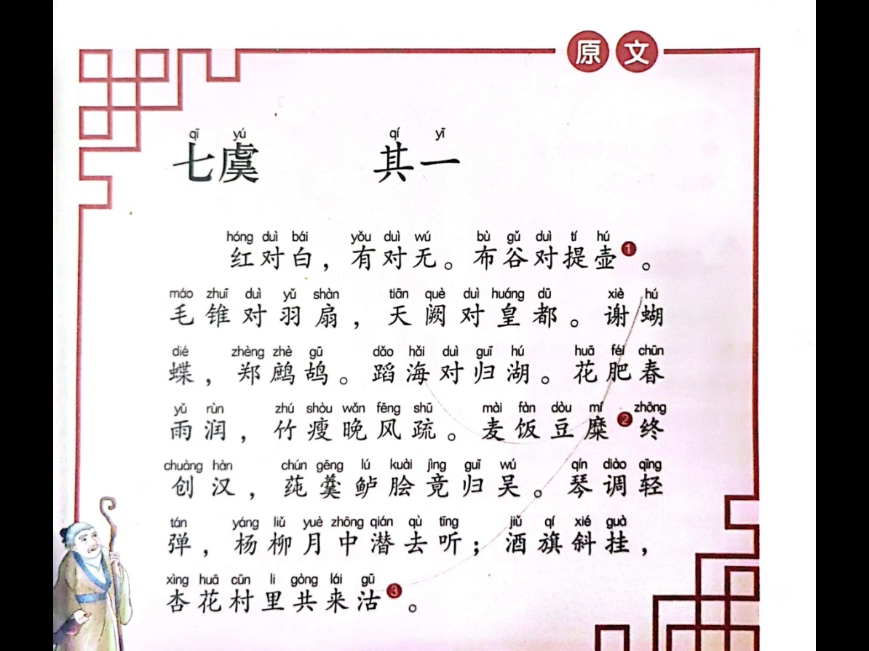 原文
qī yú qí yī
七虞 其一
hóng duì bái yǒu duì wú bù gǔ duì tí hú
红对白，有对无。布谷对提壶❶。
máo zhuī duì yǔ shàn tiān què duì huáng dū xiè hú
毛锥对羽扇，天阙对皇都。谢蝴
dié zhèng zhè gū dǎo hǎi duì guī hú huā féi chūn
蝶，郑鹧鸪。蹈海对归湖。花肥春
yǔ rùn zhú shòu wǎn fēng shū mài fàn dòu mí zhōng
雨润，竹瘦晚风疏。麦饭豆糜❷终
chuàng hàn chún gēng lú kuài jìng guī wú qín diào qīng
创汉，莼羹鲈脍竟归吴。琴调轻
tán yáng liǔ yuè zhōng qián qù tīng jiǔ qí xié guà
弹，杨柳月中潜去听；酒旗斜挂，
xìng huā cūn li gòng lái gū
杏花村里共来沽❸。